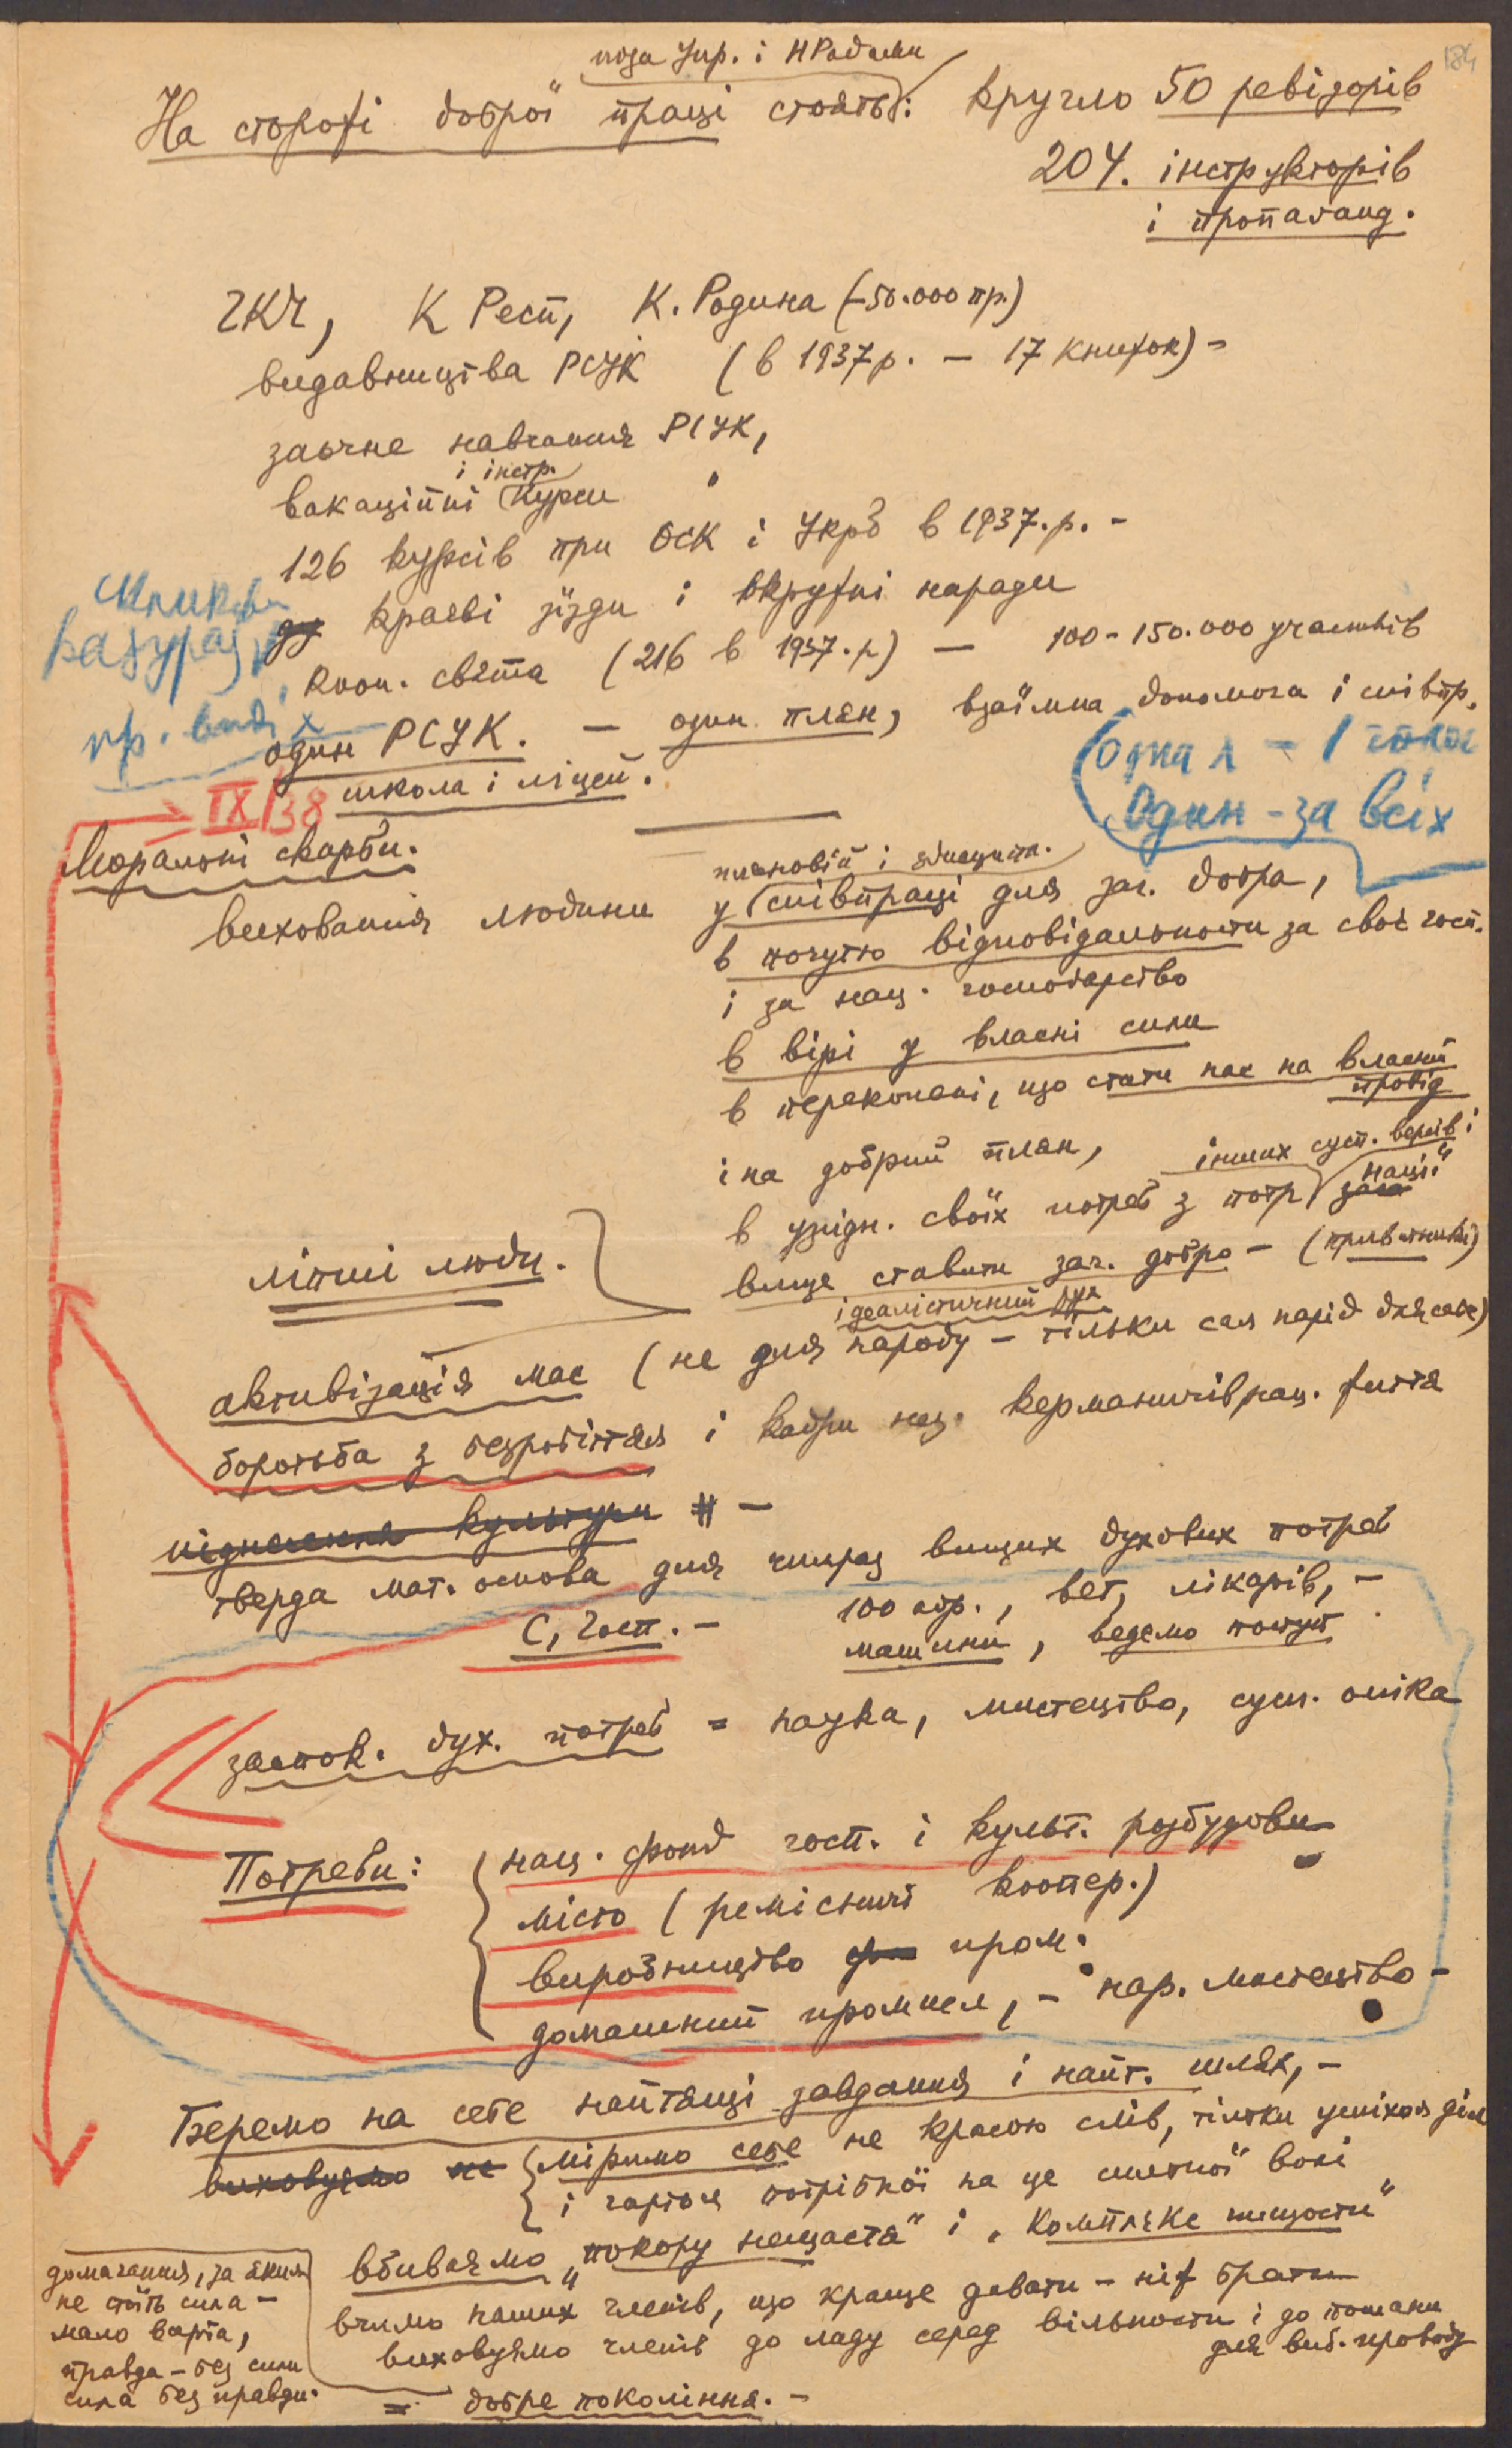 184
поза Упр. і НРадами
На сторожі доброї праці стоять: кругло 50 ревізорів
204. інструкторів
і пропаґанд.
ГКЧ, К Респ, К. Родина (-50.000 пр.)
видавництва РСУК (в 1937 р. — 17 книжок) -
заочне навчання РСУК,
і інстр.
вакаційні курси "
126 курсів при ОСК і Укрб в 1937. р. -
краєві зїзди і окружні наради
кооп. свята (216 в 1937. р) — 100-150.000 учасників
один РСУК. — один плян, взаїмна допомога і співпр.
школа і ліцей.
Одна
Один - за всіх
IX/38
Моральні скарби.
пляновій і
виховання людини у співпраці для заг. добра,
в почуттю відповідальности за своє госп.
і за нац. господарство
в вірі у власні сили
в переконані, що стати нас на власний
провід
і на добрий плян,
інших сусп. верств і
нації"
в узгідн. своїх потреб з потр
вище ставити заг. добро - (
ліпші люди.
ідеалістичний дух
активізація мас (не для народу - тільки сам нарід для себе)
боротьба з безробіттям і кадри нац. керманичів нац. життя
піднесення культури # -
тверда мат. основа для чимраз вищих духових потреб
С, Госп. - 100 агр., вет, лікарів, -
машини, ведемо поступ
заспок. дух. потреб = наука, мистецтво, сусп. опіка
Потреби: нац. фонд госп. і культ. розбудови
місто (ремісничі коопер.)
виробництво пром.
домашний промисл, - нар. мистецтво -
Беремо на себе найтящі завдання і найт. шлях, -
виховуємо не міримо себе не красою слів, тільки успіхом діл
і гартом потрібної на це сильної волі
вбиваємо „покору нещастя" і „комплєкс нищости"
вчимо наших членів, що краще давати - ніж брати
виховуємо членів до ладу серед вільности і до пошани
для виб. проводу
= добре покоління. -
домагання, за яким
не стоїть сила -
мало варта,
правда - без сили
сила без правди.